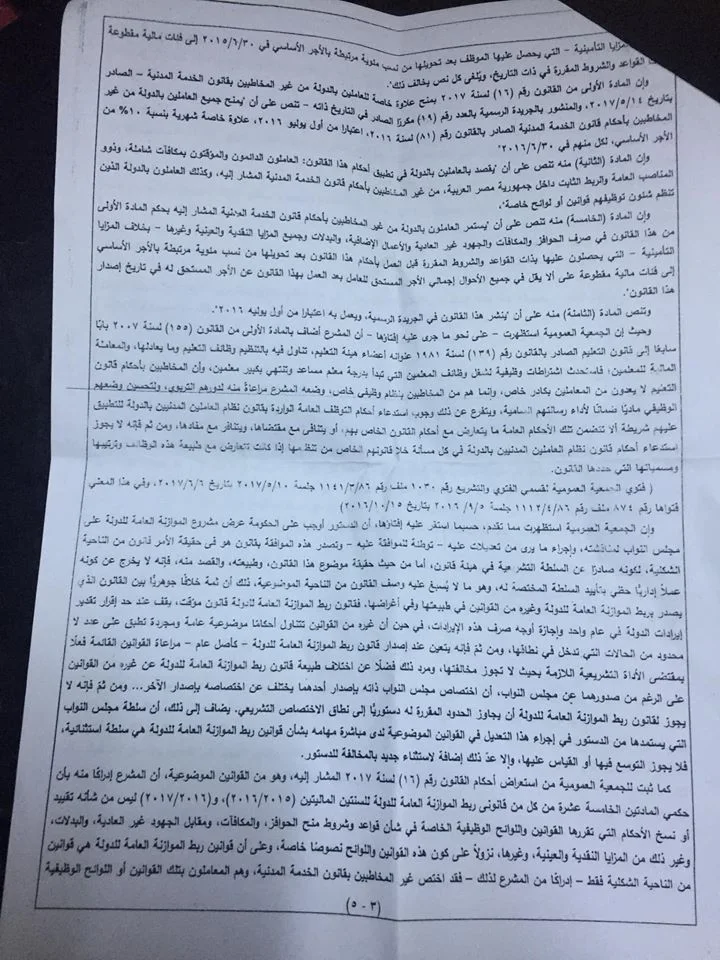 المزايا التأمينية – التي يحصل عليها الموظف بعد تحويلها من نسب مئوية مرتبطة بالأجر الأساسي في ٢٠١٥/٦/٣٠ إلى فئات مالية مقطوعة
القواعد والشروط المقررة في ذات التاريخ، ويُلغى كل نص يخالف ذلك".
وإن المادة الأولى من القانون رقم (١٦) لسنة ٢٠١٧ بمنح علاوة خاصة للعاملين بالدولة من غير المخاطبين بقانون الخدمة المدنية – الصادر
بتاريخ ٢٠١٧/٥/١٤، والمنشور بالجريدة الرسمية بالعدد رقم (١٩) مكررًا الصادر في التاريخ ذاته – تنص على أن "يمنح جميع العاملين بالدولة من غير
المخاطبين بأحكام قانون الخدمة المدنية الصادر بالقانون رقم (٨١) لسنة ٢٠١٦، اعتبارا من أول يوليو ٢٠١٦، علاوة خاصة شهرية بنسبة ١٠% من
الأجر الأساسي، لكل منهم في ٢٠١٦/٦/٣٠".
وإن المادة (الثانية) منه تنص على أن "يقصد بالعاملين بالدولة في تطبيق أحكام هذا القانون: العاملون الدائمون والمؤقتون بمكافآت شاملة، وذوو
المناصب العامة والربط الثابت داخل جمهورية مصر العربية، من غير المخاطبين بأحكام قانون الخدمة المدنية المشار إليه، وكذلك العاملون بالدولة الذين
تنظم شئون توظيفهم قوانين أو لوائح خاصة".
وإن المادة (الخامسة) منه تنص على أن "يستمر العاملون بالدولة من غير المخاطبين بأحكام قانون الخدمة المدنية المشار إليه بحكم المادة الأولى
من هذا القانون في صرف الحوافز والمكافآت والجهود غير العادية والأعمال الإضافية، والبدلات وجميع المزايا النقدية والعينية وغيرها – بخلاف المزايا
التأمينية – التي يحصلون عليها بذات القواعد والشروط المقررة قبل العمل بأحكام هذا القانون بعد تحويلها من نسب مئوية مرتبطة بالأجر الأساسي
إلى فئات مالية مقطوعة على ألا يقل في جميع الأحوال إجمالي الأجر المستحق للعامل بعد العمل بهذا القانون عن الأجر المستحق له في تاريخ إصدار
هذا القانون".
وتنص المادة (الثامنة) منه على أن "ينشر هذا القانون في الجريدة الرسمية، ويعمل به اعتبارا من أول يوليه ٢٠١٦".
وحيث إن الجمعية العمومية استظهرت – على نحو ما جرى عليه إفتاؤها – أن المشرع أضاف بالمادة الأولى من القانون (١٥٥) لسنة ٢٠٠٧ بابًا
سابعا إلى قانون التعليم الصادر بالقانون رقم (١٣٩) لسنة ١٩٨١ عنوانه أعضاء هيئة التعليم، تناول فيه بالتنظيم وظائف التعليم وما يعادلها، والمعاملة
المالية للمعلمين، فاستحدث اشتراطات وظيفية لشغل وظائف المعلمين التي تبدأ بدرجة معلم مساعد وتنتهي بكبير معلمين، وأن المخاطبين بأحكام قانون
التعليم لا يعدون من المعاملين بكادر خاص، وإنما هم من المخاطبين بنظام وظيفي خاص، وضعه المشرع مراعاةً منه لدورهم التربوي، ولتحسين وضعهم
الوظيفي ماديًا ضمانًا لأداء رسالتهم السامية، ويتفرع عن ذلك وجوب استدعاء أحكام التوظف العامة الواردة بقانون نظام العاملين المدنيين بالدولة للتطبيق
عليهم شريطة ألا تتضمن تلك الأحكام العامة ما يتعارض مع أحكام القانون الخاص بهم، أو يتنافى مع مقتضاها، ويتنافر مع مفادها، ومن ثم فإنه لا يجوز
استدعاء أحكام قانون نظام العاملين المدنيين بالدولة في كل مسألة خلا قانونهم الخاص من تنظيمها إذا كانت تتعارض مع طبيعة هذه الوظائف وترتيبها
ومسمياتها التي حددها القانون.
( فتوي الجمعية العمومية لقسمي الفتوي والتشريع رقم ١٠٣٠ ملف رقم ١١٤١/٣/٨٦ جلسة ٢٠١٧/٥/١٠ بتاريخ ٢٠١٧/٦/٦، وفي هذا المعني
فتواها رقم ٨٧٤ ملف رقم ١١١٢/٤/٨٦ جلسة ٢٠١٦ /٩/٥ بتاريخ ٢٠١٦/١٠/١٥)
وإن الجمعية العمومية استظهرت مما تقدم، حسبما استقر عليه إفتاؤها، أن الدستور أوجب على الحكومة عرض مشروع الموازنة العامة للدولة على
مجلس النواب لمناقشته، وإجراء ما يرى من تعديلات عليه – توطئة للموافقة عليه – وتصدر هذه الموافقة بقانون هو في حقيقة الأمر قانون من الناحية
الشكلية، لكونه صادرًا عن السلطة التشريعية في هيئة قانون، أما من حيث حقيقة موضوع هذا القانون، وطبيعته، والقصد منه، فإنه لا يخرج عن كونه
عملاً إداريًا حظي بتأييد السلطة المختصة له، وهو ما لا يُسبغ عليه وصف القانون من الناحية الموضوعية، ذلك أن ثمة خلافًا جوهريًا بين القانون الذي
يصدر بربط الموازنة العامة للدولة وغيره من القوانين في طبيعتها وفي أغراضها، فقانون ربط الموازنة العامة للدولة قانون مؤقت، يقف عند حد إقرار تقدير
إيرادات الدولة في عام واحد وإجازة أوجه صرف هذه الإيرادات، في حين أن غيره من القوانين تتناول أحكامًا موضوعية عامة ومجردة تطبق على عدد لا
محدود من الحالات التي تدخل في نطاقها، ومن ثم فإنه يتعين عند إصدار قانون ربط الموازنة العامة للدولة – كأصل عام – مراعاة القوانين القائمة فعلًا
بمقتضى الأداة التشريعية اللازمة بحيث لا تجوز مخالفتها، ومرد ذلك فضلًا عن اختلاف طبيعة قانون ربط الموازنة العامة للدولة عن غيره من القوانين
على الرغم من صدورهما عن مجلس النواب، أن اختصاص مجلس النواب ذاته بإصدار أحدهما يختلف عن اختصاصه بإصدار الآخر... ومن ثم فإنه لا
يجوز لقانون ربط الموازنة العامة للدولة أن يجاوز الحدود المقررة له دستوريًا إلى نطاق الاختصاص التشريعي. يضاف إلى ذلك، أن سلطة مجلس النواب
التي يستمدها من الدستور في إجراء هذا التعديل في القوانين الموضوعية لدى مباشرة مهامه بشأن قوانين ربط الموازنة العامة للدولة هي سلطة استثنائية،
فلا يجوز التوسع فيها أو القياس عليها، وإلا عدّ ذلك إضافة لاستثناء جديد بالمخالفة للدستور.
كما ثبت للجمعية العمومية من استعراض أحكام القانون رقم (١٦) لسنة ٢٠١٧ المشار إليه، وهو من القوانين الموضوعية، أن المشرع إدراكًا منه بأن
حكمي المادتين الخامسة عشرة من كل من قانونى ربط الموازنة العامة للدولة للسنتين الماليتين (٢٠١٦/٢٠١٥)، و(٢٠١٧/٢٠١٦) ليس من شأنه تقييد
أو نسخ الأحكام التي تقررها القوانين واللوائح الوظيفية الخاصة في شأن قواعد وشروط منح الحوافز، والمكافآت، ومقابل الجهود غير العادية، والبدلات،
وغير ذلك من المزايا النقدية والعينية، وغيرها، نزولًا على كون هذه القوانين واللوائح نصوصًا خاصة، وعلى أن قوانين ربط الموازنة العامة للدولة هي قوانين
من الناحية الشكلية فقط – إدراكًا من المشرع لذلك – فقد اختص غير المخاطبين بقانون الخدمة المدنية، وهم المعاملون بتلك القوانين أو اللوائح الوظيفية
(٣ - ٥)